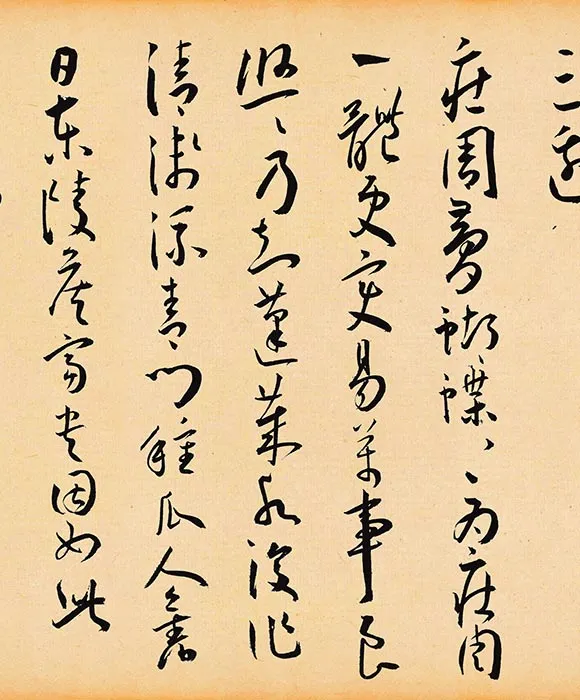 三
庄周夢蝴蝶〻〻為庄周
一體更變易萬事良
悠〻乃知蓬萊水復作
清淺流青門種瓜人舊
日東陵侯富貴固如此